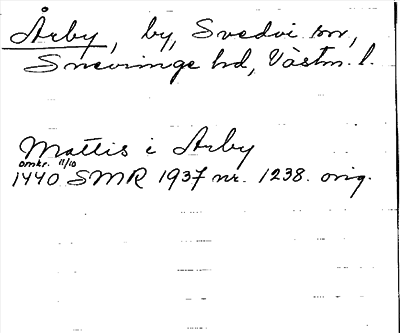 Årby, by, Svedvi sn,
Snevringe hd, Västm. l.
Mattis i Arby
omkr. 11/10
1440 SMR 1937 nr. 1238. orig.